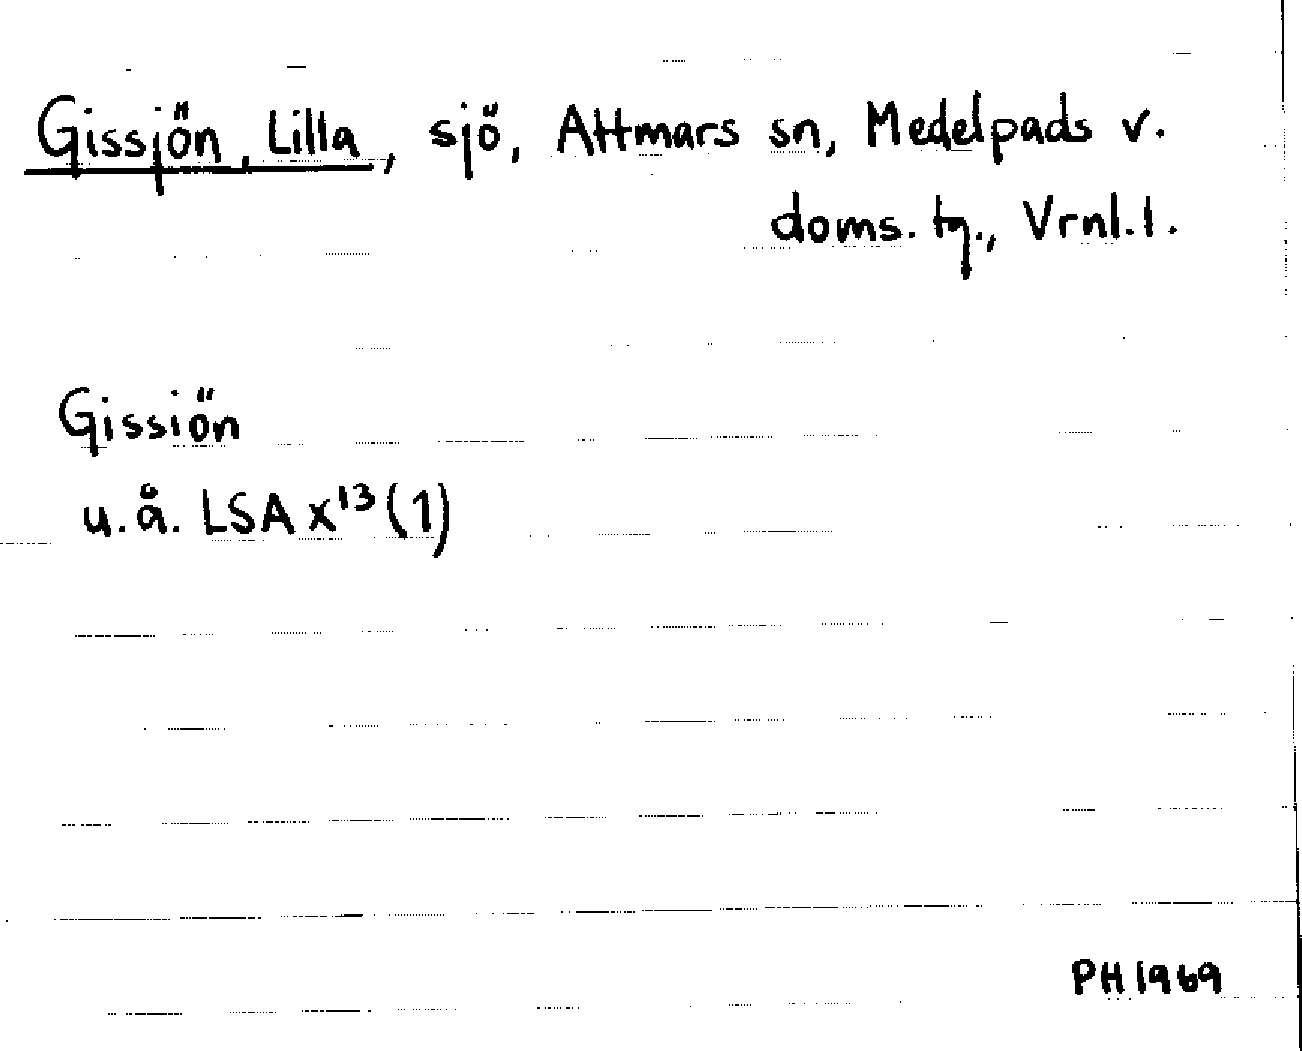 Gissjön, Lilla, sjö, Attmars sn, Medelpads v.
doms. tg., Vrnl. l.
Gissiön
u.å. LSA X¹³(1)
PH 1969